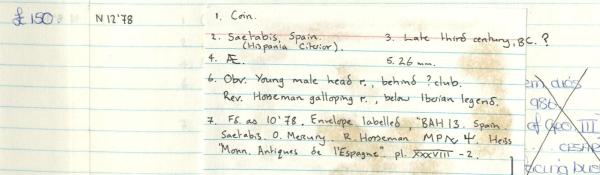 £150
N 12'78
1. Coin.
2. Saetabis, Spain.
(Hispania Citerior).
3. Late third century, BC. ?
4. Æ.
5. 26 mm.
6. Obv. Young male head r., behind ? club.
Rev. Horseman galloping r., below Iberian legend.
7. Fs. as 10'78. Envelope labelled, "BAH 13. Spain
Saetabis. O. Mercury. R. Horseman Heiss
"Monn. Antiques de l'Espagne" pl. XXXVIII - 2.
986
of Geo III